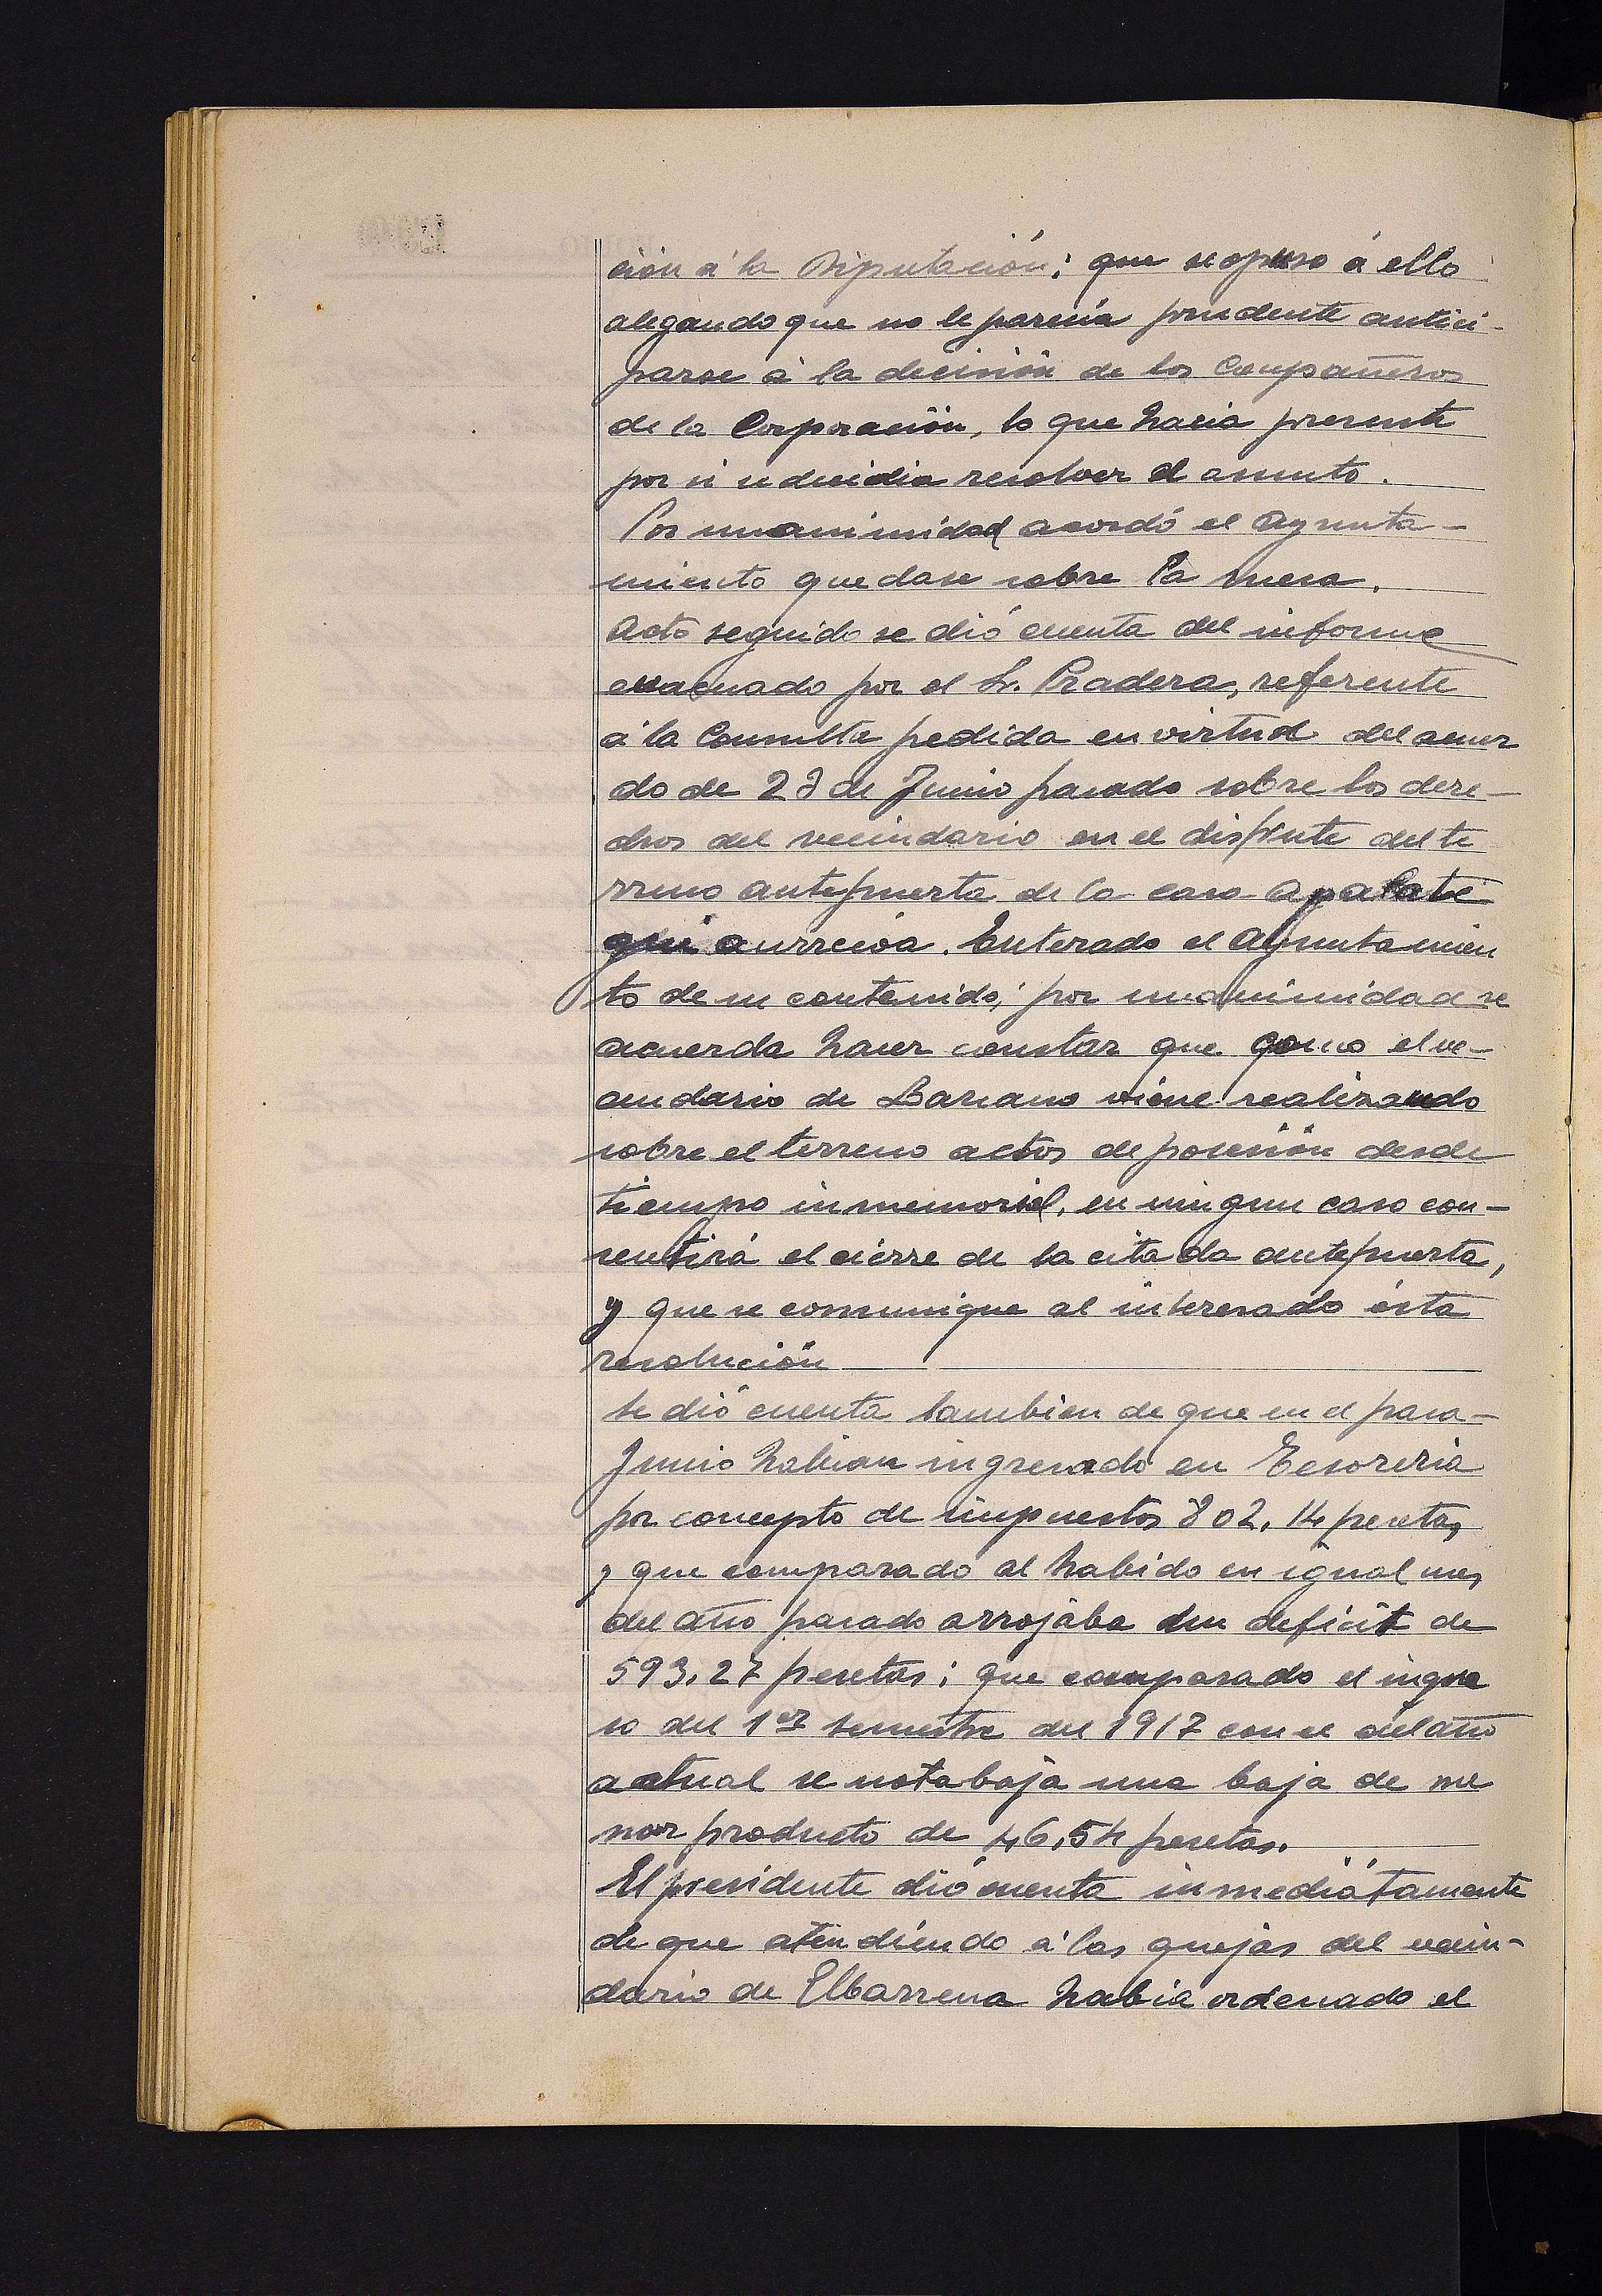 ción á la Diputación; que se opuso á ello
alegando que no le parecía prudente antici-
parse á la decisión de los Compañeros
de la Corporación, lo que hacia presente
por si se decidia resolver el asunto.
Por unanimidad acordó el Ayunta-
miento quedase sobre la mesa.
Acto seguido se dió cuenta del informe
evacuado por el Sr. Pradera, referente
á la Consulta pedida en virtud del acuer
do de 23 de Junio pasado sobre los dere-
chos del vecindario en el disfrute del te
rreno antepuerta de la casa Apalate
gui aurrecóa. Enterado el Ayuntamien
to de su contenido; por unanimidad se
acuerda hacer constar que como el ve-
cindario de Lazcano viene realizando
sobre el terreno actos de posesión desde
tiempo inmemorial, en ningun caso con-
sentirá el cierre de la citada antepuerta,
y que se comunique al interesado ésta
resolución
Se dió cuenta tambien de que en el pasa-
Junio habian ingresado en Tesoreria
por concepto de impuestos 802,14 pesetas
y que comparado al habido en igual mes
del año pasado arrojaba un deficit de
593,27 pesetas; que comparado el ingre
so del 1er semestre del 1917 con el del año
actual se notabaja una baja de me
nor producto de 46,54 pesetas.
El presidente dió cuenta inmediátamente
de que atendiendo á las quejas del vecin-
dario de Elbarrena habia ordenado el